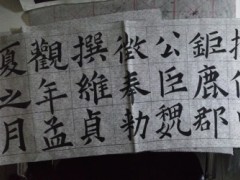 鉅鹿郡
公臣魏
徵奉勑
撰維貞
觀年孟
夏之月